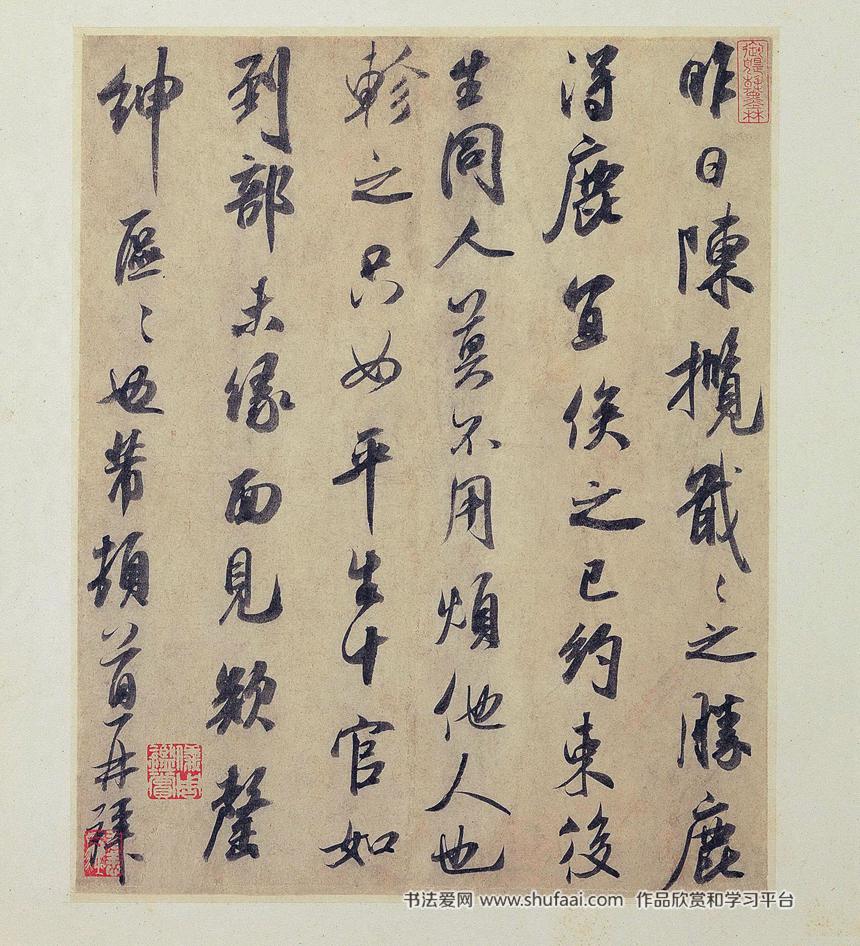 昨日陳攬戢戢之勝鹿
得鹿宜俟之已約束後
生同人莫不用煩他人也
軫之只如平生十官如
到部未緣面見欵罄
紳區區也芾頓首再拜
书法爱网 www.shufaai.com 作品欣赏和学习平台